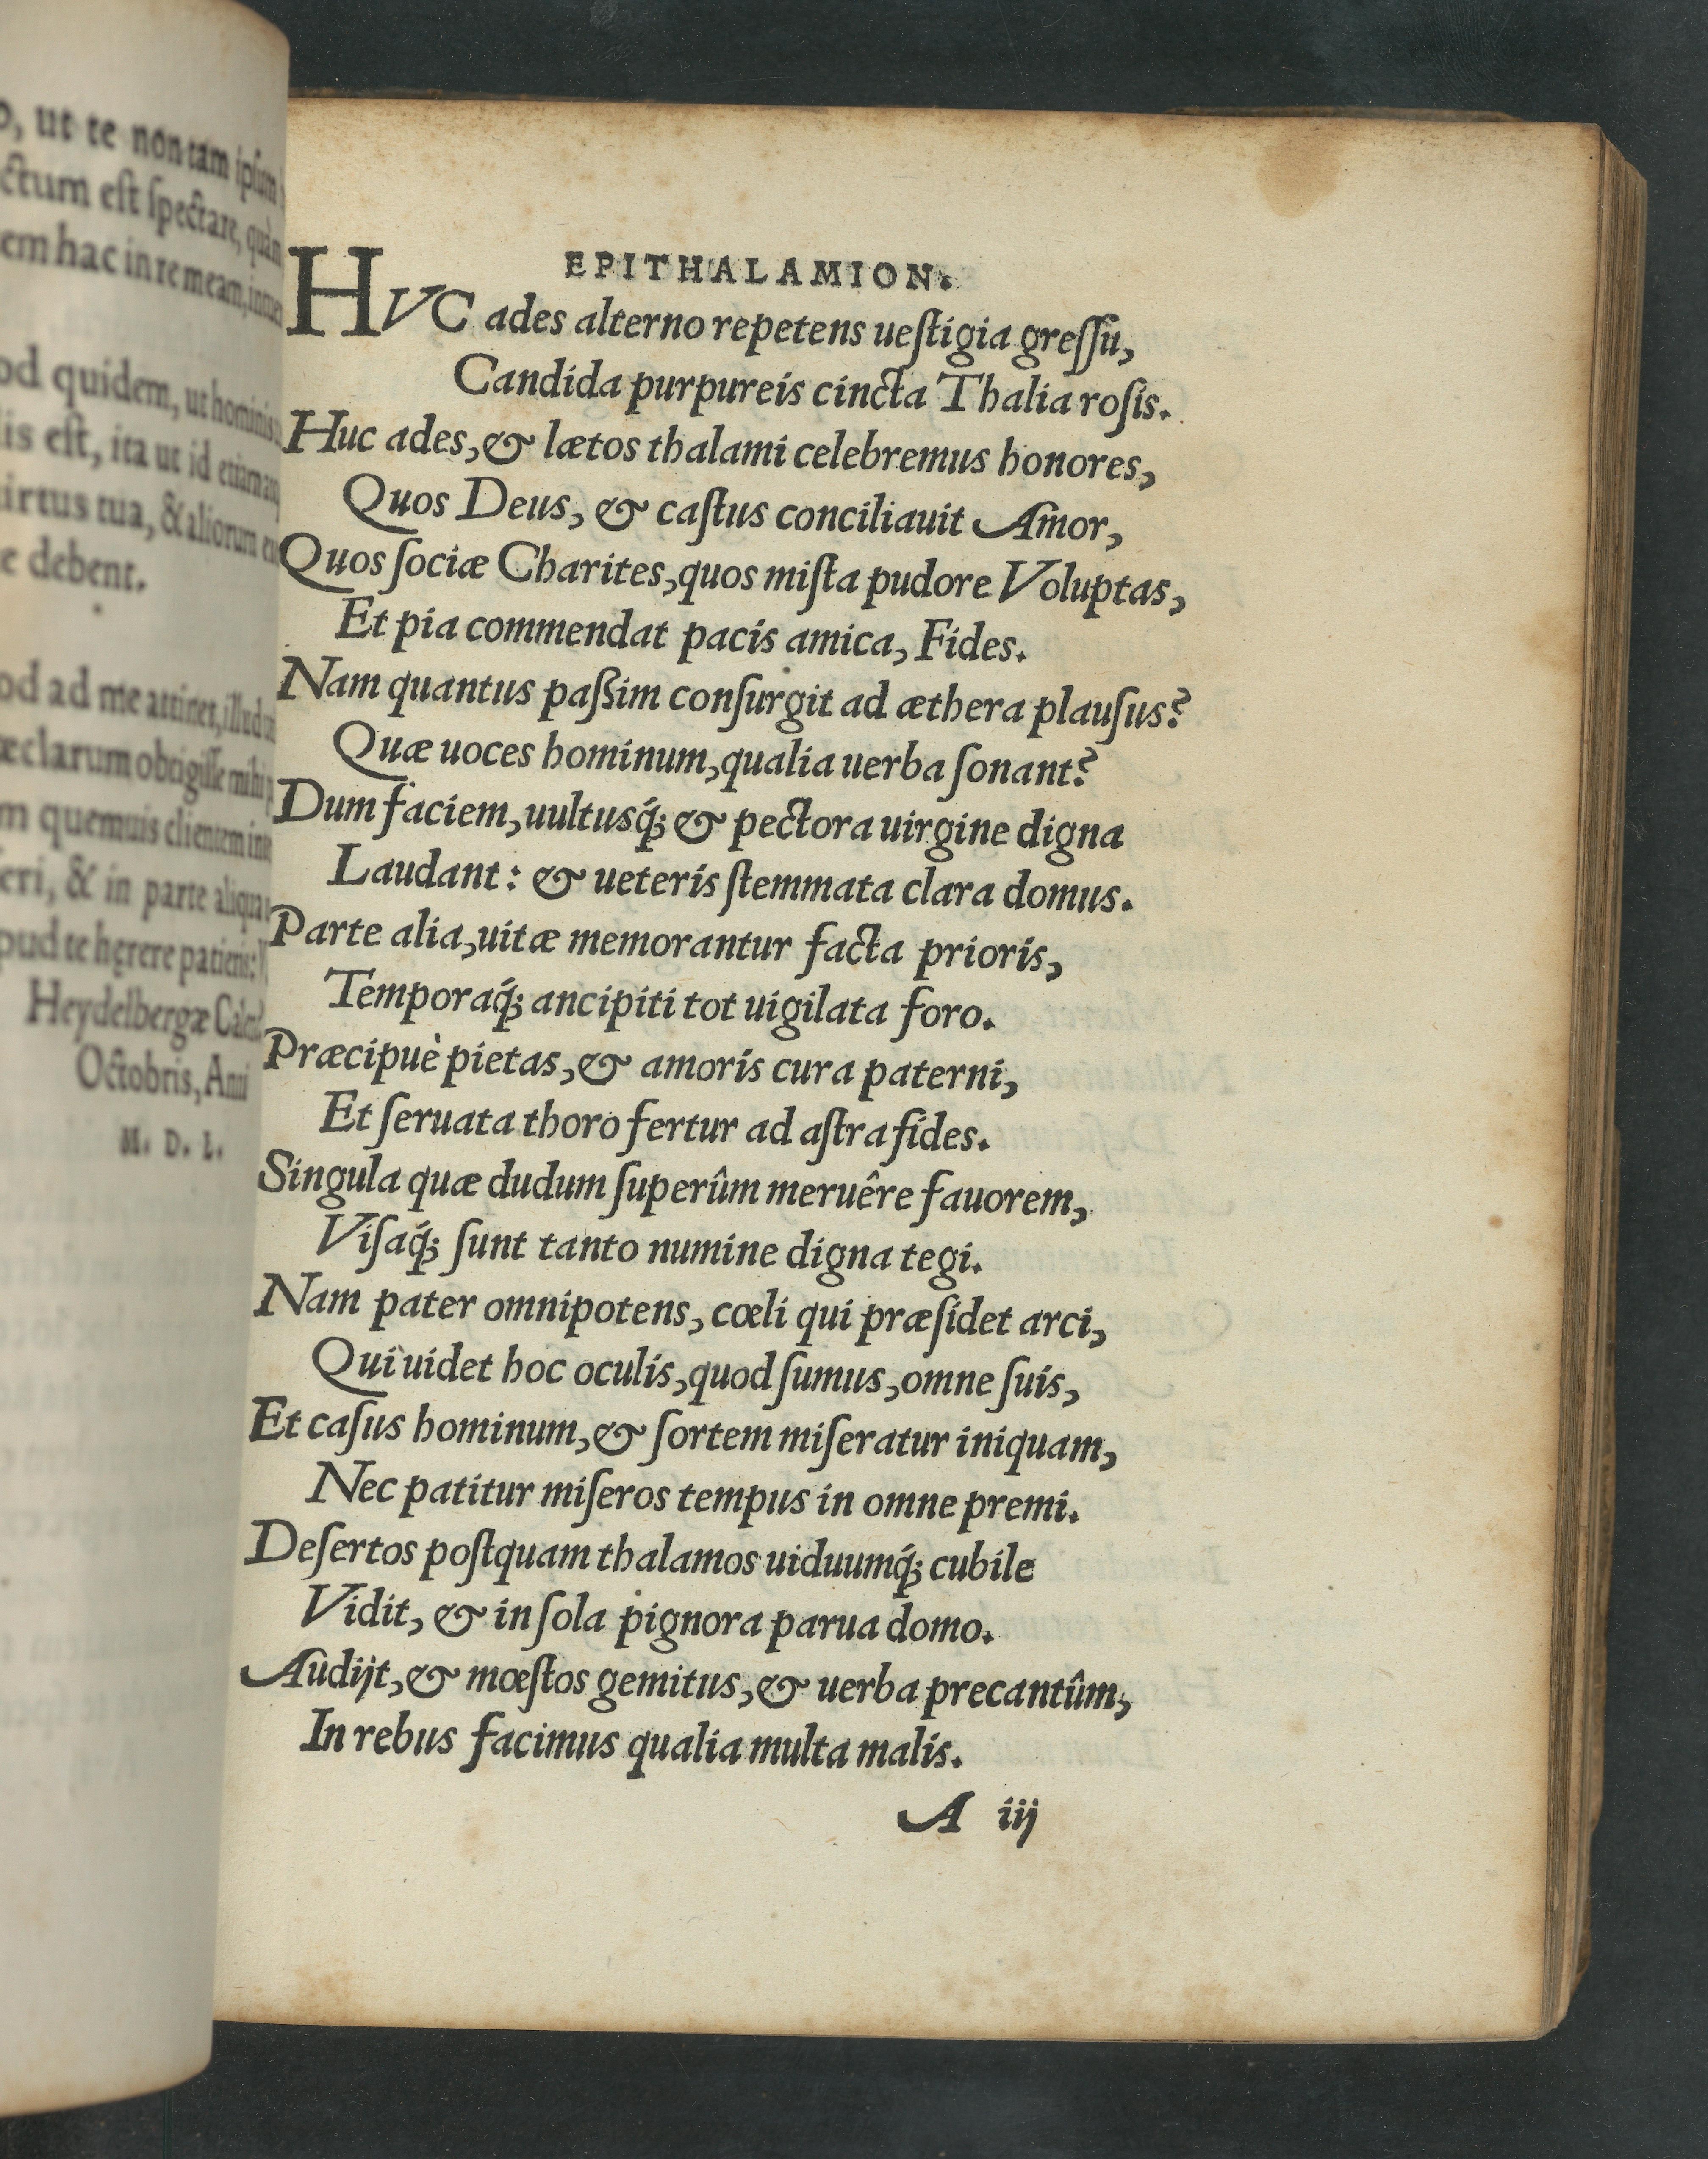 , ut te non tam ipsum
ctum est spectare, quàm
em hac in re meam,
od quidem, ut hominis
is est, ita ut id etiam
uirtus tua, & aliorum
e debent.
od ad me attinet, illud
æclarum obtigisse mihi
m quemuis clientem
eri, & in parte
pud te hęrere
Heydelbergæ
Octobris,
M. D. L.
EPITHALAMION.
HVC ades alterno repetens ueſtigia greſſu,
Candida purpureis cincta Thalia roſis.
Huc ades, & lætos thalami celebremus honores,
Quos Deus, & caſtus conciliauit Amor,
Quos ſociæ Charites, quos miſta pudore Voluptas,
Et pia commendat pacis amica, Fides.
Nam quantus paßim conſurgit ad æthera plauſus?
Quæ uoces hominum, qualia uerba ſonant?
Dum faciem, uultusq́; & pectora uirgine digna
Laudant: & ueteris ſtemmata clara domus.
Parte alia, uitæ memorantur facta prioris,
Temporaq́; ancipiti tot uigilata foro.
Præcipuè pietas, & amoris cura paterni,
Et ſeruata thoro fertur ad aſtra fides.
Singula quæ dudum ſuperûm meruêre fauorem,
Viſaq́; ſunt tanto numine digna tegi.
Nam pater omnipotens, cœli qui præſidet arci,
Qui uidet hoc oculis, quod ſumus, omne ſuis,
Et caſus hominum, & ſortem miſeratur iniquam,
Nec patitur miſeros tempus in omne premi.
Deſertos poſtquam thalamos uiduumq́; cubile
Vidit, & in ſola pignora parua domo.
Audijt, & mœſtos gemitus, & uerba precantûm,
In rebus facimus qualia multa malis.
A iij